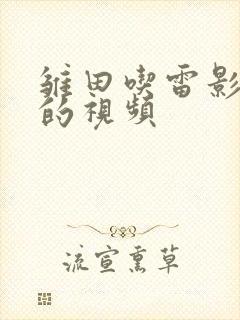 雏田喫雷影
的視頻
流宣熏草